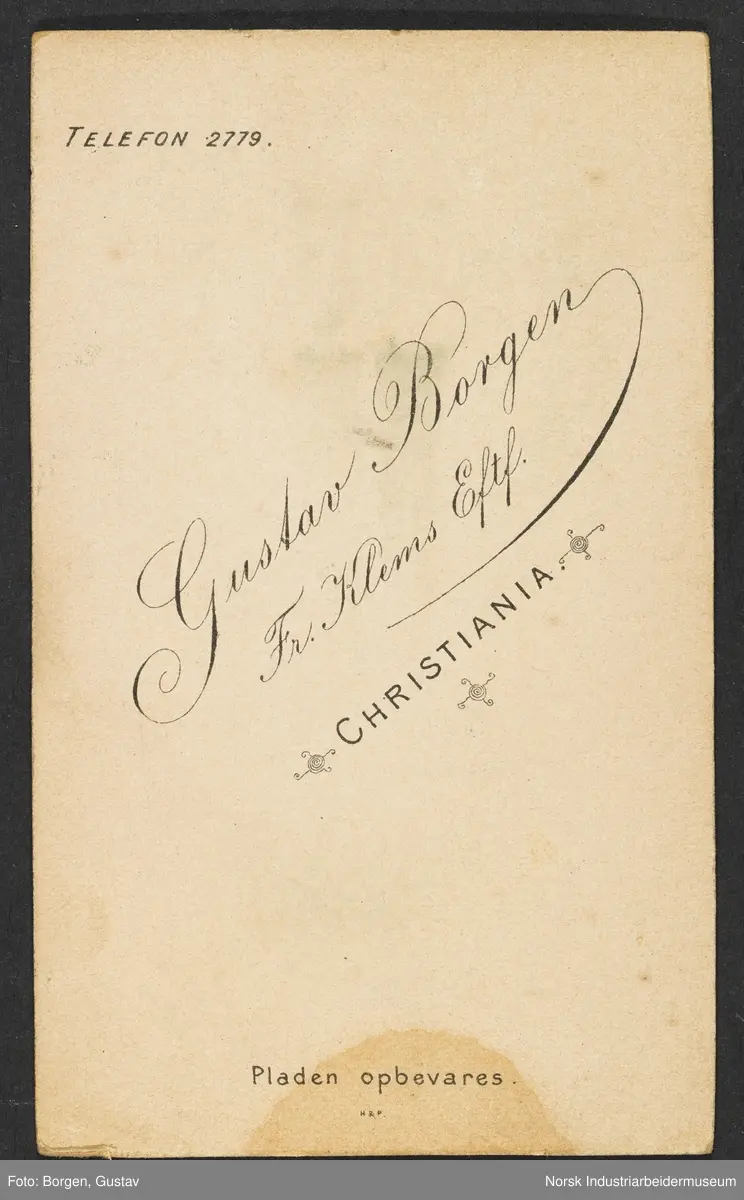 TELEFON 2779.
Gustav Borgen
Fr. Klems Eftf.
CHRISTIANIA.
Pladen opbevares.
H&P.
Foto: Borgen, Gustav
Norsk Industriarbeidermuseum